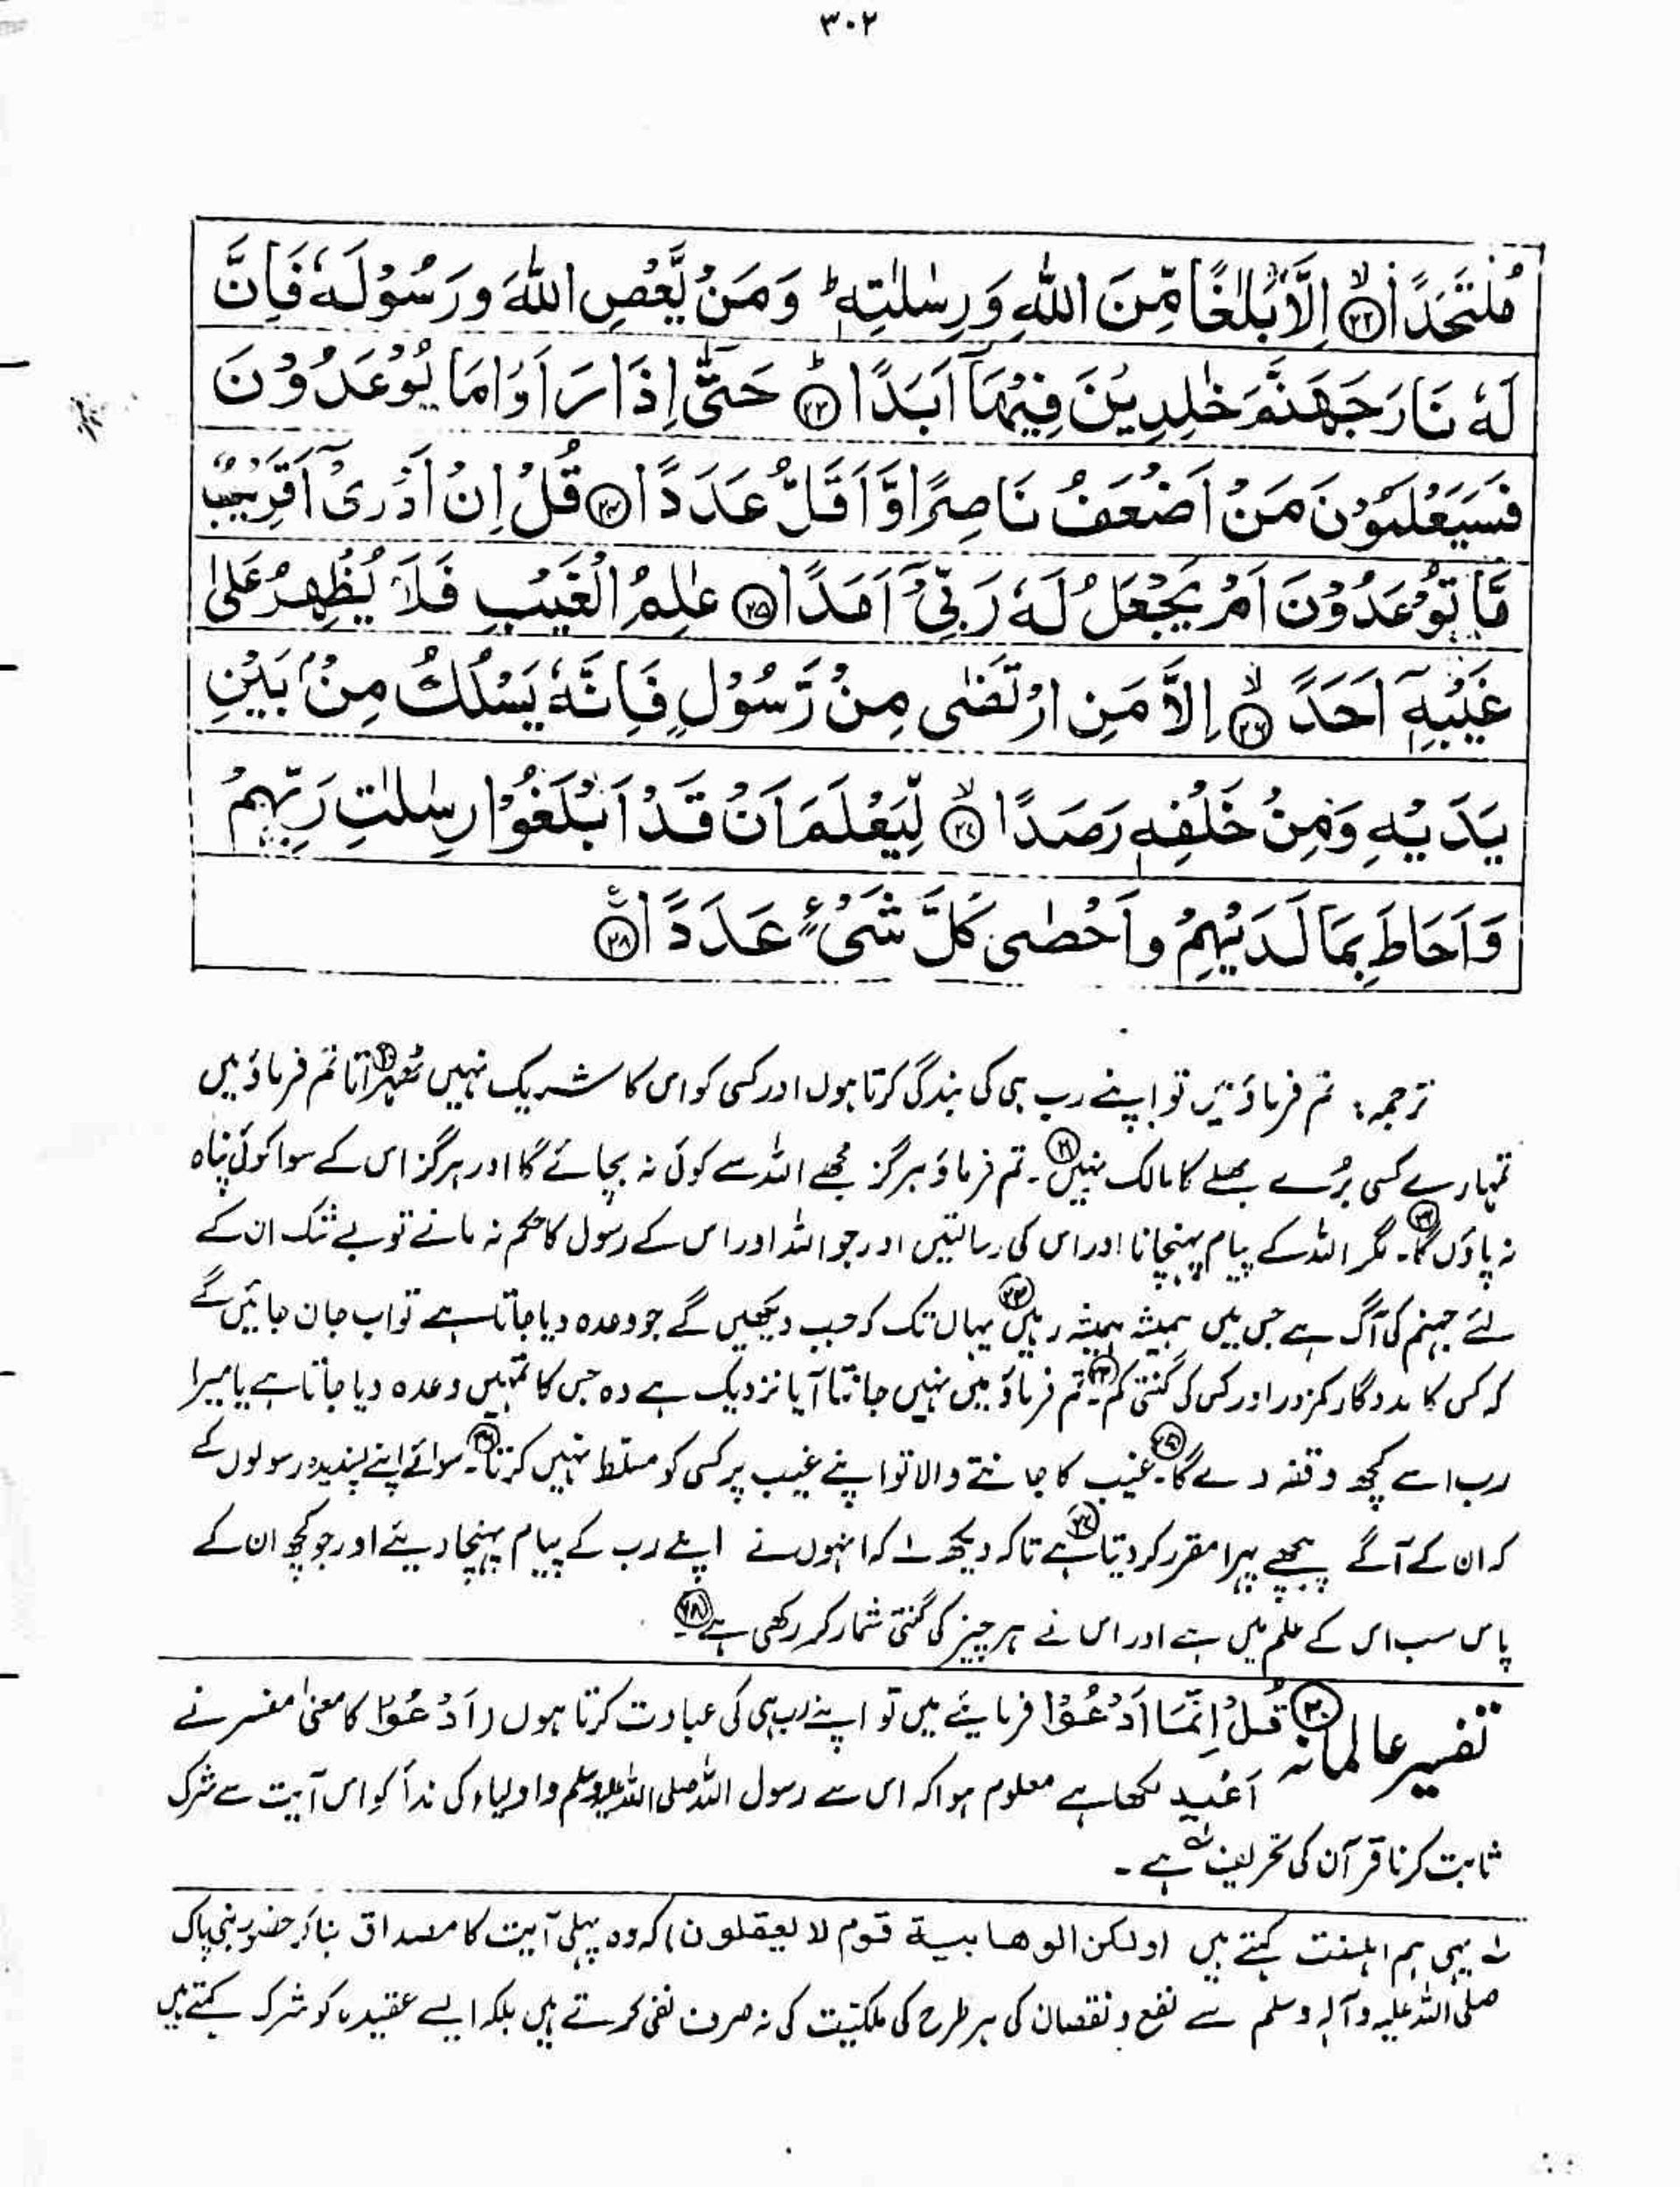 ۳۰۲
مُلْتَحَدًا ﴿۲۲﴾ اِلَّا بَلٰغًا مِّنَ اللّٰهِ وَ رِسٰلٰتِهٖ ؕ وَ مَنْ یَّعْصِ اللّٰهَ وَ رَسُوْلَهٗ فَاِنَّ
لَهٗ نَارَ جَهَنَّمَ خٰلِدِیْنَ فِیْهَاۤ اَبَدًا ؕ ﴿۲۳﴾ حَتّٰۤی اِذَا رَاَوْا مَا یُوْعَدُوْنَ
فَسَیَعْلَمُوْنَ مَنْ اَضْعَفُ نَاصِرًا وَّ اَقَلُّ عَدَدًا ﴿۲۴﴾ قُلْ اِنْ اَدْرِیْۤ اَقَرِیْبٌ
مَّا تُوْعَدُوْنَ اَمْ یَجْعَلُ لَهٗ رَبِّیْۤ اَمَدًا ﴿۲۵﴾ عٰلِمُ الْغَیْبِ فَلَا یُظْهِرُ عَلٰی
غَیْبِهٖۤ اَحَدًا ﴿۲۶﴾ اِلَّا مَنِ ارْتَضٰی مِنْ رَّسُوْلٍ فَاِنَّهٗ یَسْلُكُ مِنْۢ بَیْنِ
یَدَیْهِ وَ مِنْ خَلْفِهٖ رَصَدًا ﴿۲۷﴾ لِّیَعْلَمَ اَنْ قَدْ اَبْلَغُوْا رِسٰلٰتِ رَبِّهِمْ
وَ اَحَاطَ بِمَا لَدَیْهِمْ وَ اَحْصٰی كُلَّ شَیْءٍ عَدَدًا ﴿۲۸﴾
ترجمہ: تم فرماؤ میں تو اپنے رب ہی کی بندگی کرتا ہوں اور کسی کو اس کا شریک نہیں ٹھہراتا ﴿۲۰﴾ تم فرماؤ میں
تمہارے کسی بُرے بھلے کا مالک نہیں ﴿۲۱﴾۔ تم فرماؤ ہرگز مجھے اللہ سے کوئی نہ بچائے گا اور ہرگز اس کے سوا کوئی پناہ
نہ پاؤں گا ﴿۲۲﴾۔ مگر اللہ کے پیام پہنچانا اور اس کی رسالتیں اور جو اللہ اور اس کے رسول کا حکم نہ مانے تو بے شک ان کے
لئے جہنم کی آگ ہے جس میں ہمیشہ ہمیشہ رہیں ﴿۲۳﴾ یہاں تک کہ جب دیکھیں گے جو وعدہ دیا جاتا ہے تو اب جان جائیں گے
کہ کس کا مددگار کمزور اور کس کی گنتی کم ﴿۲۴﴾۔ تم فرماؤ میں نہیں جانتا آیا نزدیک ہے وہ جس کا تمہیں وعدہ دیا جاتا ہے یا میرا
رب اسے کچھ وقفہ دے گا ﴿۲۵﴾۔ غیب کا جاننے والا تو اپنے غیب پر کسی کو مسلّط نہیں کرتا ﴿۲۶﴾۔ سوائے اپنے پسندیدہ رسولوں کے
کہ ان کے آگے پیچھے پہرا مقرر کر دیتا ہے ﴿۲۷﴾ تاکہ دیکھ لے کہ انہوں نے اپنے رب کے پیام پہنچا دیئے اور جو کچھ ان کے
پاس سب اس کے علم میں ہے اور اس نے ہر چیز کی گنتی شمار کر رکھی ہے ﴿۲۸﴾۔
تفسیر عالمانہ ﴿۲۰﴾ قُلْ اِنَّمَا اَدْعُوْا فرمائیے میں تو اپنے رب ہی کی عبادت کرتا ہوں (اَدْعُوْا کا معنیٰ مفسر نے
اَعْبُد لکھا ہے معلوم ہوا کہ اس سے رسول اللہ صلی اللہ علیہ وسلم و اولیاء کی ندأ کو اس آیت سے شرک
ثابت کرنا قرآن کی تحریف ؎۱ ہے۔
؎۱ یہی ہم اہلسنت کہتے ہیں (ولکن الوھابیۃ قوم لا یعقلون) کہ وہ پہلی آیت کا مصداق بنا کر حضور نبی پاک
صلی اللہ علیہ و آلہ وسلم سے نفع و نقصان کی ہر طرح کی ملکیّت کی نہ صرف نفی کرتے ہیں بلکہ ایسے عقیدہ کو شرک کہتے ہیں